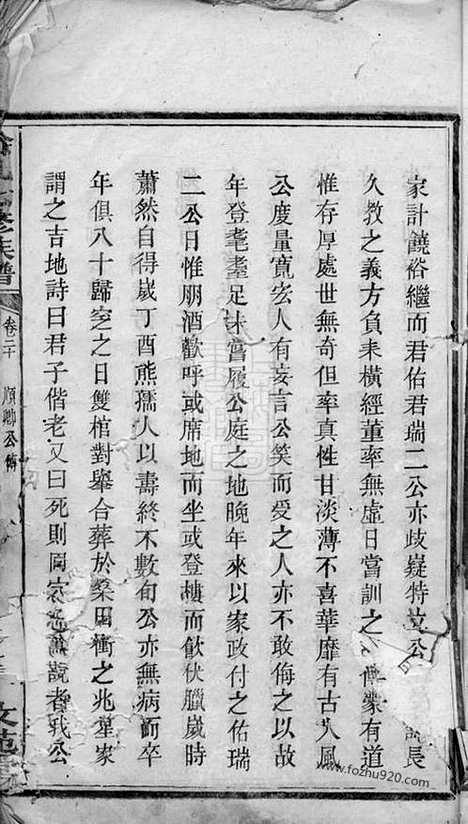 家計饒裕繼而君佑君瑞二公亦歧嶷特立公長
久教之義方負耒橫經董率無虛日當訓之傳家有道
惟存厚處世無奇但率真性甘淡薄不喜華靡有古人風
公度量寬宏人有妄言公笑而受之人亦不敢侮之以故
年登耄耋足未嘗履公庭之地晚年來以家政付之佑瑞
二公日惟朋酒歡呼或席地而坐或登樓而飲伏臘歲時
蕭然自得歲丁酉熊孺人以壽終不數旬公亦無病而卒
年俱八十歸窆之日雙棺對舉合葬於桑田衝之兆堪家
謂之吉地詩曰君子偕老又曰死則同穴觀者哉公
修族譜
卷二十
順卿公傳
文苑
www.fozhu920.com